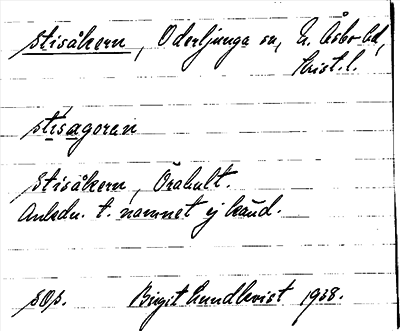 Stisåkern, Oderljunga sn, N. Åsbo hd,
Krist. l.
stisagoran
Stisåkern, Örahult.
Anledn. t. namnet ej känd.
sOp. Birgit Lundkvist 1938.